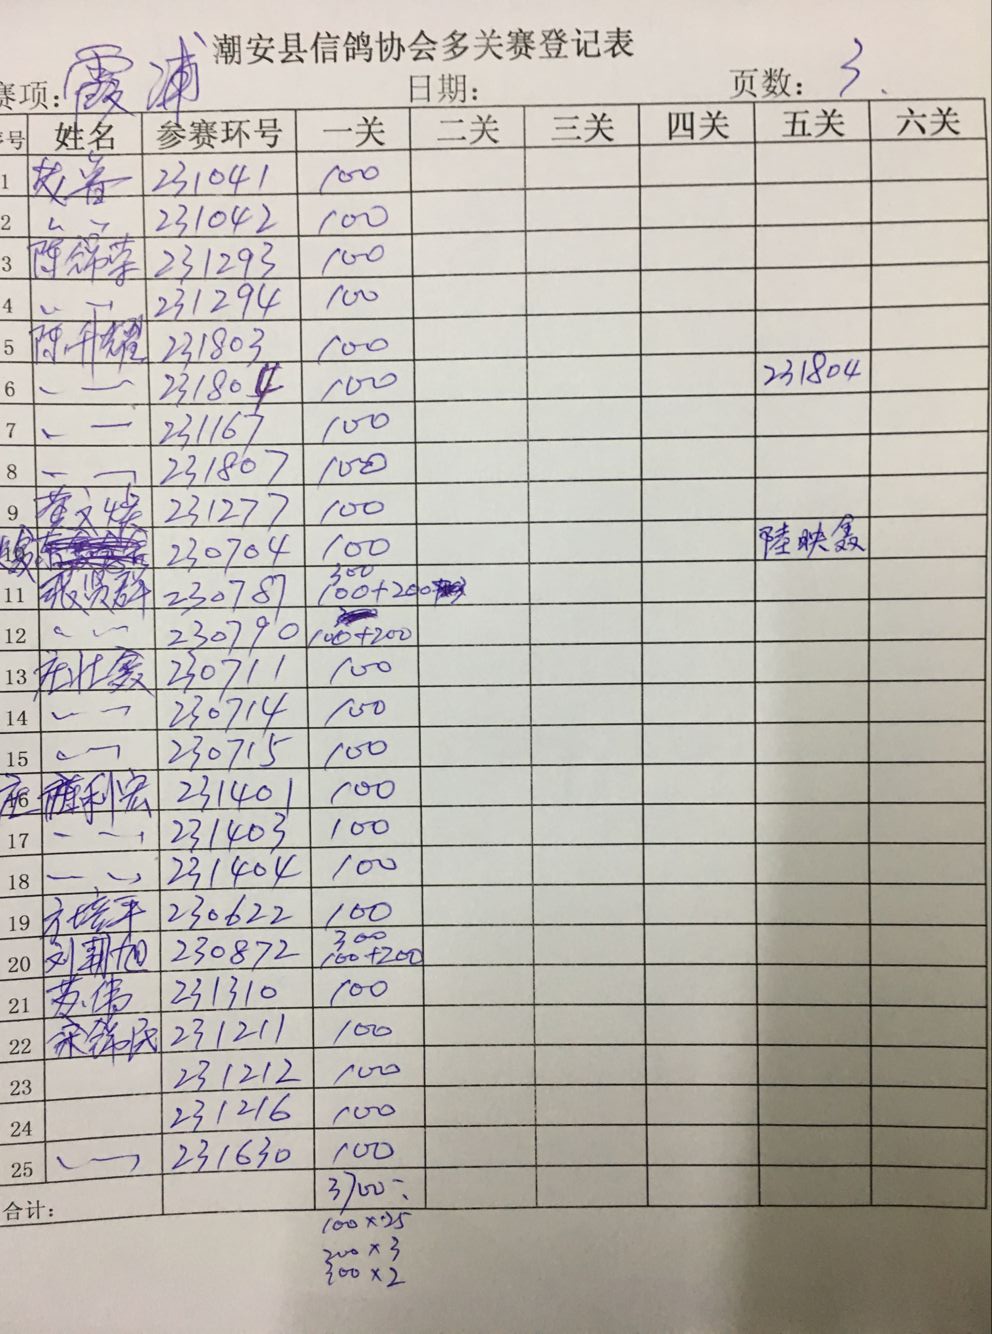 潮安县信鸽协会多关赛登记表
赛项: 霞浦 日期: 页数: 3.
序号 姓名 参赛环号 一关 二关 三关 四关 五关 六关
1 231041 100
2 〃 231042 100
3 陈锦荣 231293 100
4 〃 231294 100
5 陈开耀 231803 100
6 〃 231804 100 231804
7 〃 231167 100
8 〃 231807 100
9 黄文焕 231277 100
10 230704 100 陆映轰
11 张贤群 230787 300 100+200
12 〃 230790 100+200
13 230711 100
14 〃 230714 100
15 〃 230715 100
16 庄 利宏 231401 100
17 〃 231403 100
18 〃 231404 100
19 方培平 230622 100
20 230872 300 100+200
21 苏伟 231310 100
22 锦民 231211 100
23 231212 100
24 231216 100
25 〃 231630 100
合计: 3700
100×25
200×3
300×2